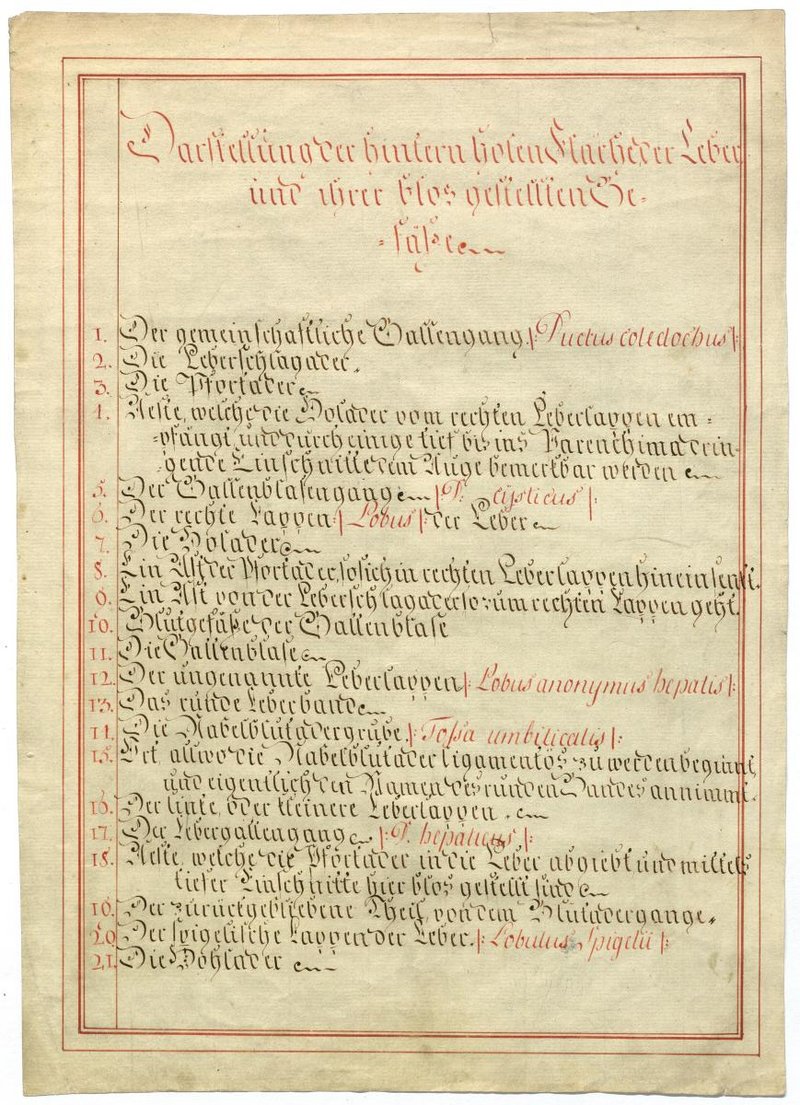 Darstellung der hintern holen Flache der Leber
und ihrer blos gestellten Ge-
-fäße
1. Der gemeinschaftliche Gallengang |: Ductus coledochus :|
2. Die Leberschlagader.
3. Die Pfortader
4. Aeste, welche die Holader vom rechten Leberlappen em-
-pfängt, und durch einige tief bis ins Parenchima drin-
gende Einschnitte dem Auge bemerkbar werden
5. Der Gallenblasengang |: D. cysticus :|
6. Der rechte Lappen |: Lobus :| der Leber
7. Die Holader
8. Ein Ast der Pfortader, so sich in rechten Leberlappen hinein senkt.
9. Ein Ast von der Leberschlagader so zum rechten Lappen geht.
10. Blutgefäße der Gallenblase
11. Die Gallenblase
12. Der ungenannte Leberlappen |: Lobus anonymus hepatis :|
13. Das runde Leberband
14. Die Nabelblutadergrube. |: Fossa umbilicalis :|
15. Ort, allwo die Nabelblutader ligamentos zu werden beginnt,
und eigentlich den Namen des runden Bandes annimmt.
16. Der linke, oder kleinere Leberlappen.
17. Der Lebergallengang |: D. hepaticus :|
18. Aeste, welche die Pfortader in die Leber abgiebt und mittels
tiefer Einschnitte hier blos gestellt sind
19. Der zurückgebliebene Theil von dem Blutadergange.
20. Der spigelische Lappen der Leber. |: Lobulus Spigelii :|
21. Die Hohlader